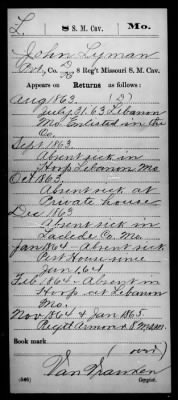 L. 8 S. M. Cav. Mo.
John Lyman
Pvt, Co. 8 Reg't Missouri S. M. Cav.
Appears on
Returns as follows:
Aug 1863.
July 31, 63 Lebanon
Mo. Enlisted in the
Co.
Sept 1863.
Absent sick in
Hosp Lebanon Mo
Oct 1863.
Absent sick at
Private house
Dec 1863
Absent sick in
Laclede Co. Mo.
Jan 1864 - Absent sick
Pest House since
Jan 1, 64
Feb 1864 - Absent in
Hosp at Lebanon
Mo.
Nov 1864 & Jan 1865.
Regtl Armorer
(over)
(546)
Copyist.